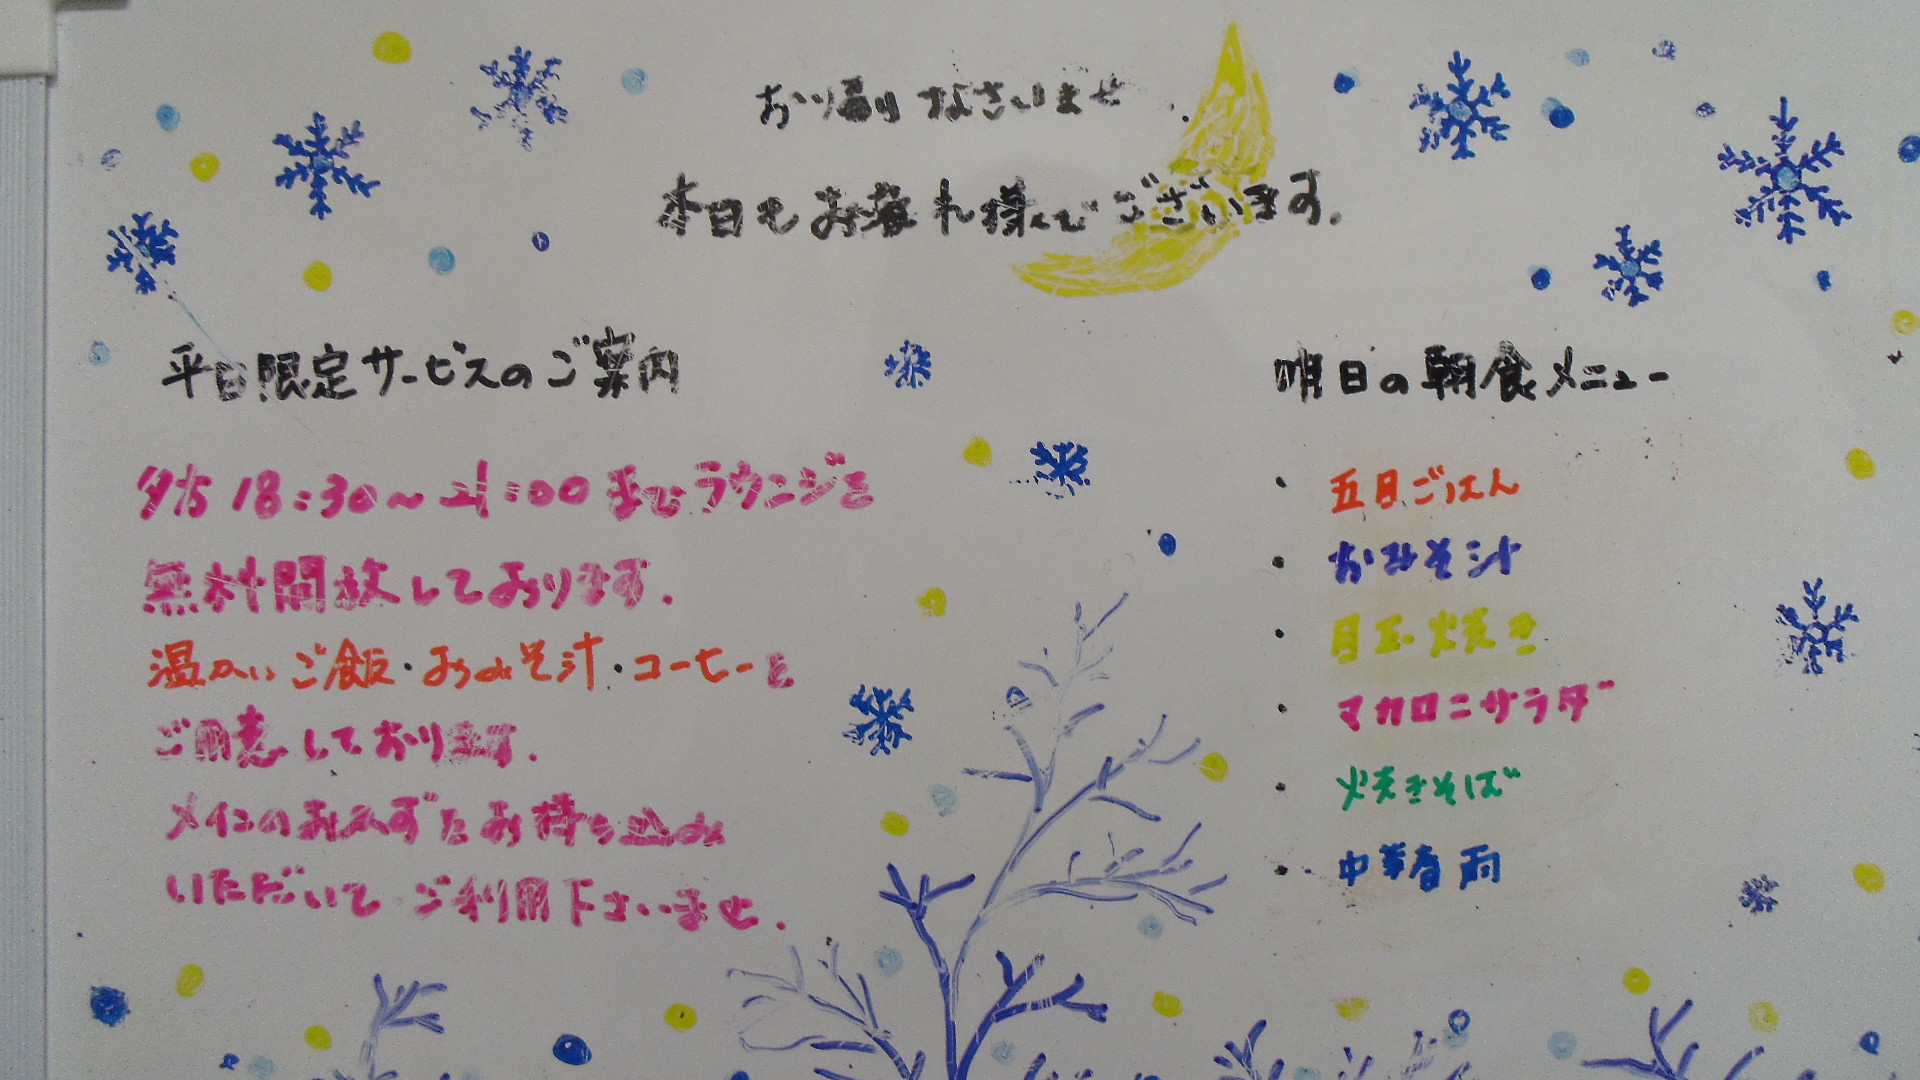 お帰りなさいませ
本日もお疲れ様でございます。
平日限定サービスのご案内
夕方18:30〜21:00までラウンジを
無料開放しております。
温かいご飯・おみそ汁・コーヒーを
ご用意しております。
メインのおかずをお持ち込み
いただいてご利用下さいませ。
明日の朝食メニュー
・五目ごはん
・おみそ汁
・目玉焼き
・マカロニサラダ
・焼きそば
・中華春雨